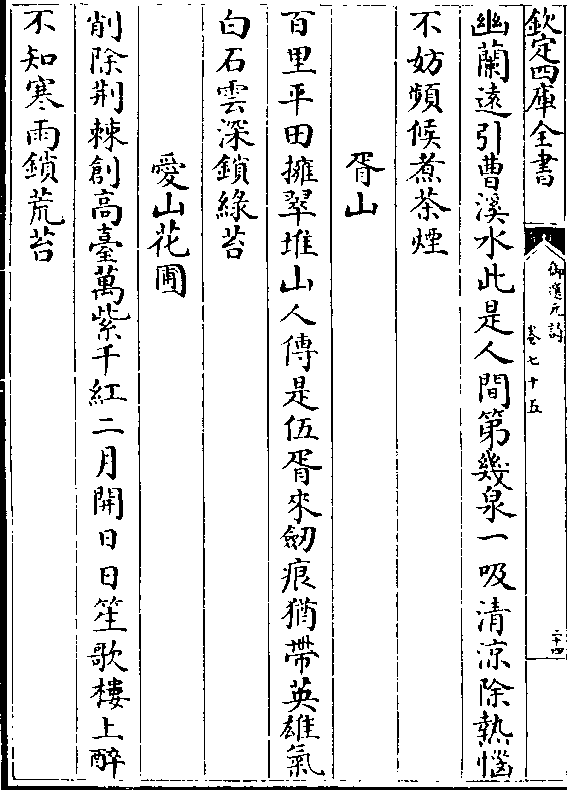 欽定四庫全書
御選元詩
卷七十五
二十四
幽蘭遠引曹溪水此是人間第幾泉一吸清涼除熱惱
不妨頻候煮茶煙
胥山
百里平田擁翠堆山人傳是伍胥來劒痕猶帶英雄氣
白石雲深鎖綠苔
愛山花圃
削除荆棘創高臺萬紫千紅二月開日日笙歌樓上醉
不知寒雨鎖荒苔